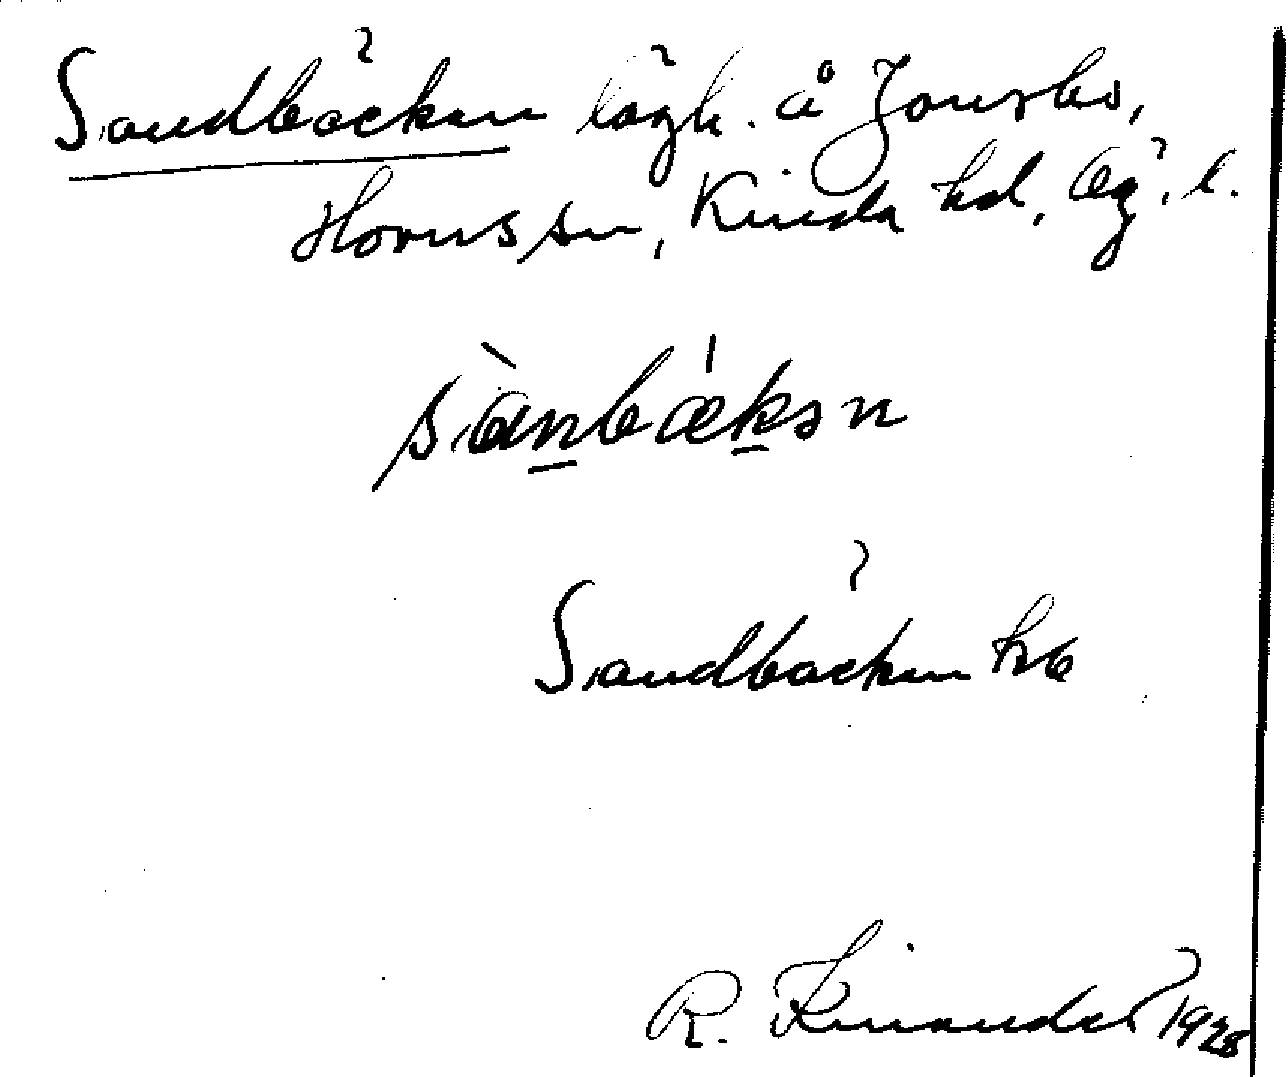 Sandbäcken lägh. å Jonsbo,
Horns sn, Kinda hd, Ög. l.
sànbǽkən
Sandbäcken
R. Kinander 1928